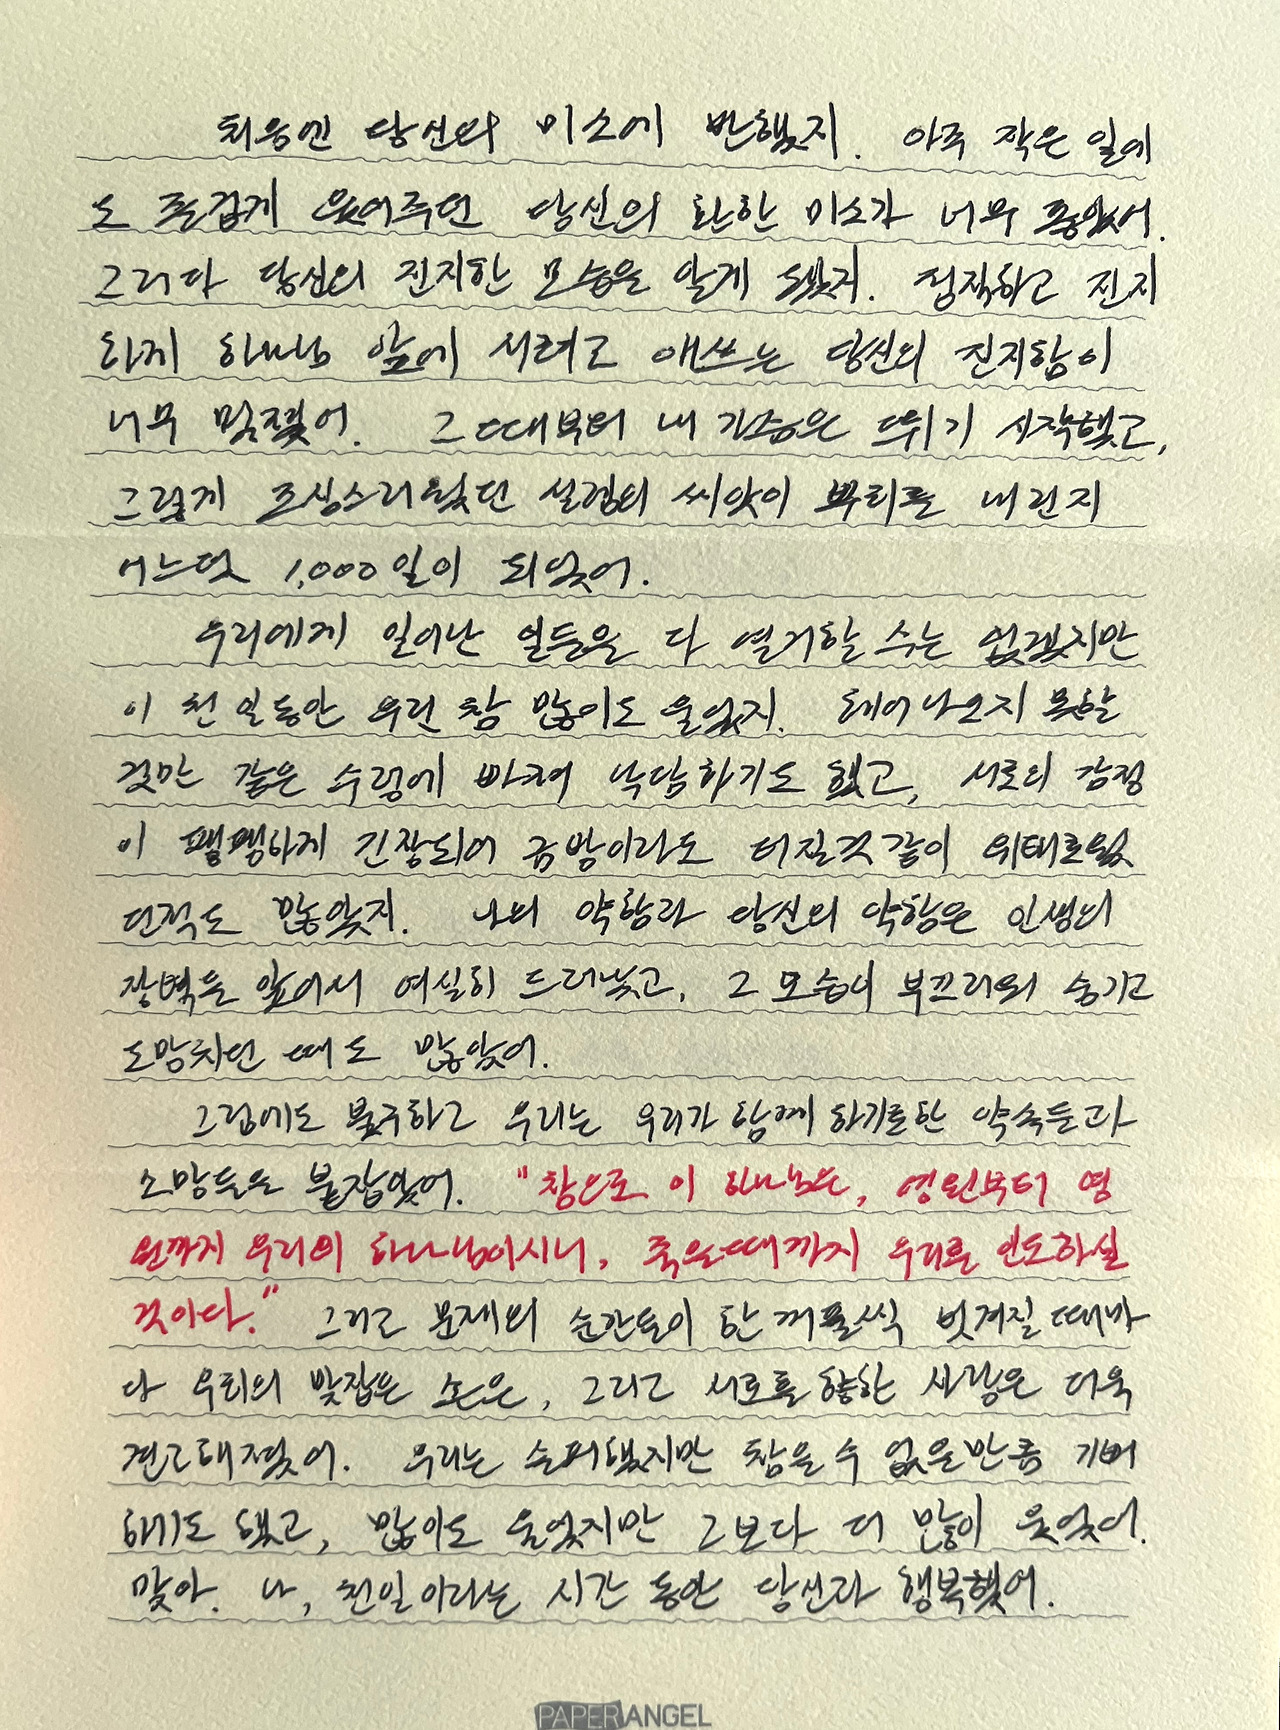 처음엔 당신의 미소에 반했지. 아주 작은 일에
도 즐겁게 웃어주던 당신의 환한 미소가 너무 좋았어.
그러다 당신의 진지한 모습을 알게 됐지. 정직하고 진지
하게 하나님 앞에 서려고 애쓰는 당신의 진지함이
너무 멋졌어. 그 때부터 내 가슴은 뛰기 시작했고,
그렇게 조심스러웠던 설렘의 씨앗이 뿌리를 내린지
어느덧 1,000일이 되었어.
우리에게 일어난 일들을 다 열거할 수는 없겠지만
이 천 일동안 우린 참 많이도 울었지. 헤어나오지 못할
것만 같은 수렁에 빠져 낙담하기도 했고, 서로의 감정
이 팽팽하게 긴장되어 금방이라도 터질것 같이 위태로웠
던적도 많았지. 나의 약함과 당신의 약함은 인생의
장벽들 앞에서 여실히 드러났고, 그 모습이 부끄러워 숨기고
도망치던 때도 많았어.
그럼에도 불구하고 우리는 우리가 함께 하기로한 약속들과
소망들을 붙잡았어. "참으로 이 하나님은, 영원부터 영
원까지 우리의 하나님이시니, 죽을때까지 우리를 인도하실
것이다." 그리고 문제의 순간들이 한 꺼풀씩 벗겨질 때마
다 우리의 맞잡은 손은, 그리고 서로를 향한 사랑은 더욱
견고해졌어. 우리는 슬퍼했지만 참을 수 없을만큼 기뻐
하기도 했고, 많이도 울었지만 그보다 더 많이 웃었어.
맞아. 나, 천일이라는 시간 동안 당신과 행복했어.
PAPER ANGEL